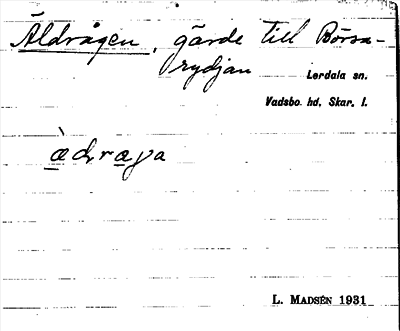 Äldrågen, gärde till Börsa-
rydjan
Lerdala sn.
Vadsbo hd, Skar. l.
L. MADSÉN 1931